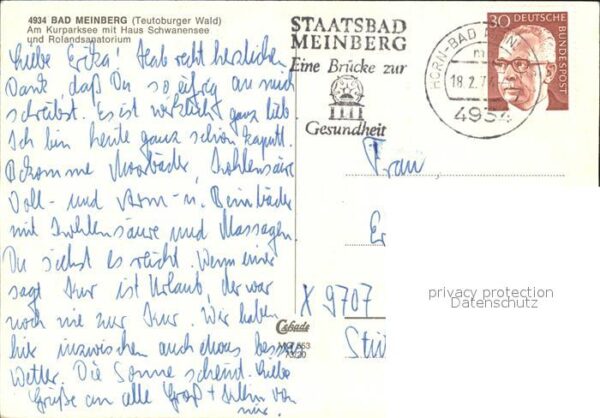 4934 BAD MEINBERG (Teutoburger Wald)
Am Kurparksee mit Haus Schwanensee
und Rolandsanatorium
Liebe Erika! Hab recht herzlichen
Dank, daß Du so eifrig an mich
schreibst. Es ist wirklich ganz lieb
Ich bin heute ganz schön kaputt.
Bekomme Moorbäder, Kohlensäure
Voll- und Arm- u. Beinbäder
mit Kohlensäure und Massagen
Du siehst es reicht. Wenn einer
sagt Kur ist Urlaub, der war
noch nie zur Kur. Wir haben
hier inzwischen auch etwas besseres
Wetter. Die Sonne scheint. Liebe
Grüße an alle Groß + Klein von
mir.
STAATSBAD
MEINBERG
Eine Brücke zur
Gesundheit
HORN-BAD
18.2.7
4934
30 DEUTSCHE
BUNDESPOST
Frau
Er
X 9707
Cekade
privacy protection
Datenschutz